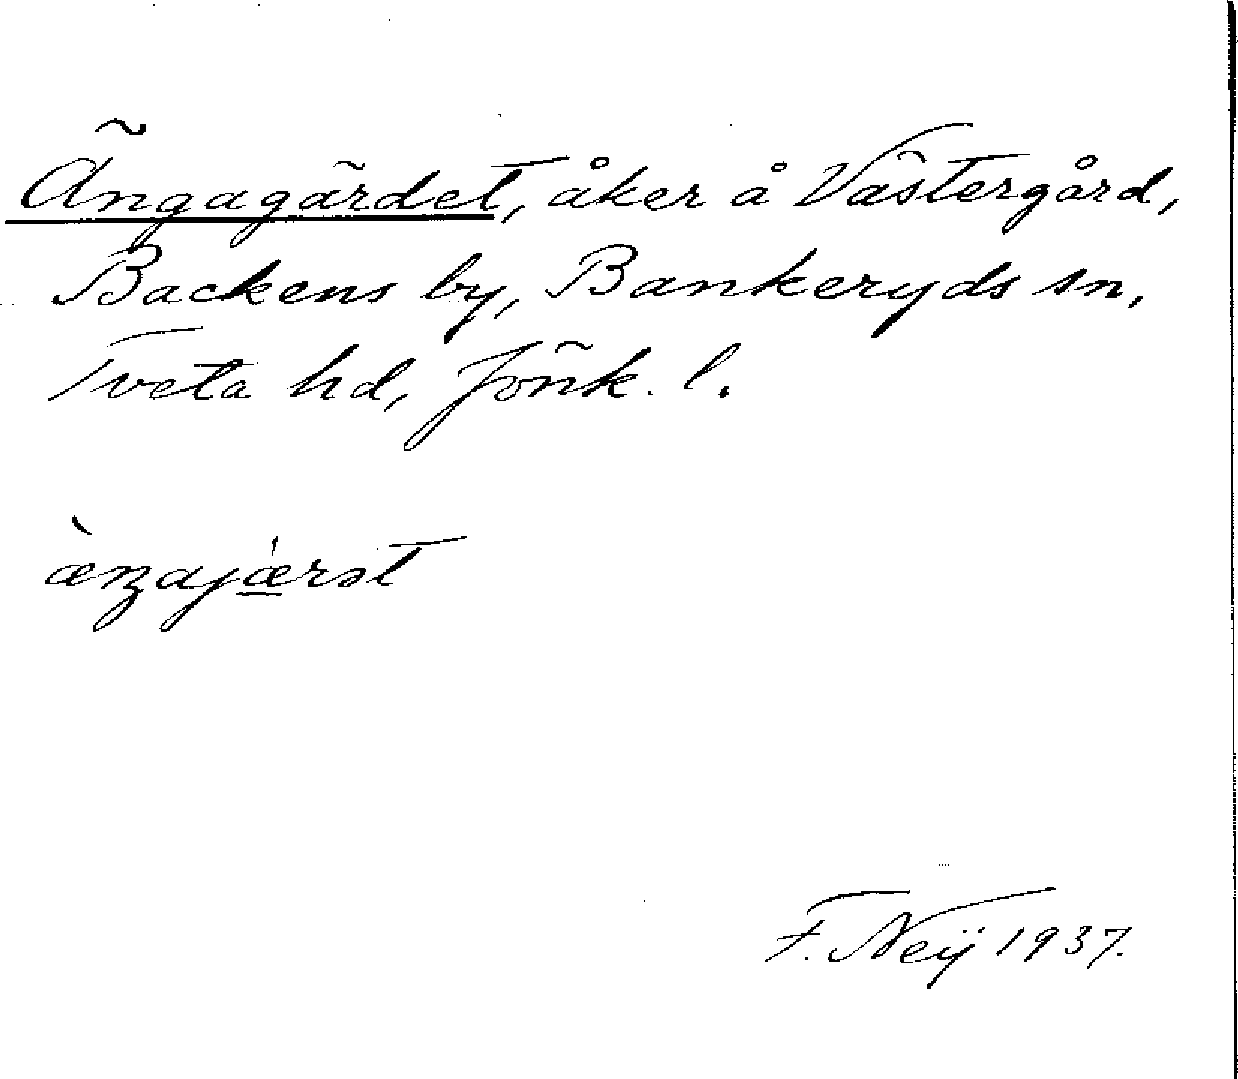 Ängagärdet, åker å Västergård,
Backens by, Bankeryds sn,
Tveta hd, Jönk. l.
F. Neij 1937.